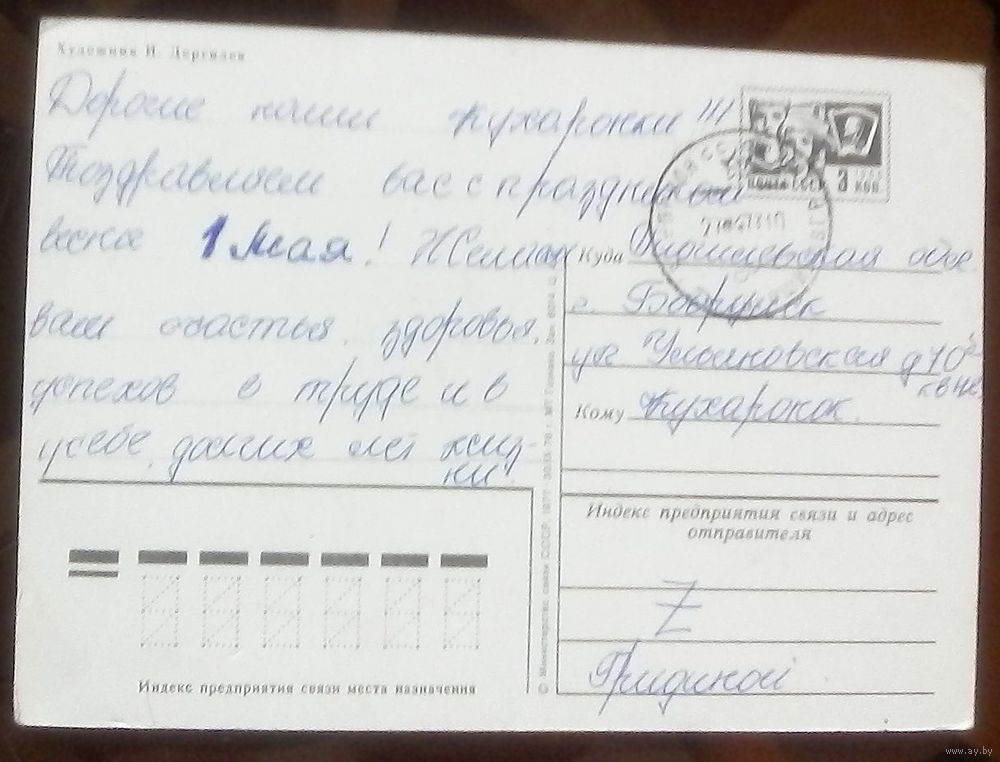 Художник И. Дергилев
Дорогие наши Кухаронки!!!
Поздравляем вас с праздником
весны 1 Мая! Желаем
вам счастья, здоровья,
успехов в труде и в
учебе, долгих лет жиз-
ни.
ПОЧТА СССР 3 КОП
Куда Могилевская обл.
г. Бобруйск
ул Ульяновская д
Кому Кухаронок.
Индекс предприятия связи и адрес
отправителя
Z
Гридиной
Индекс предприятия связи места назначения
© Министерство связи СССР. 1977
www.ay.by